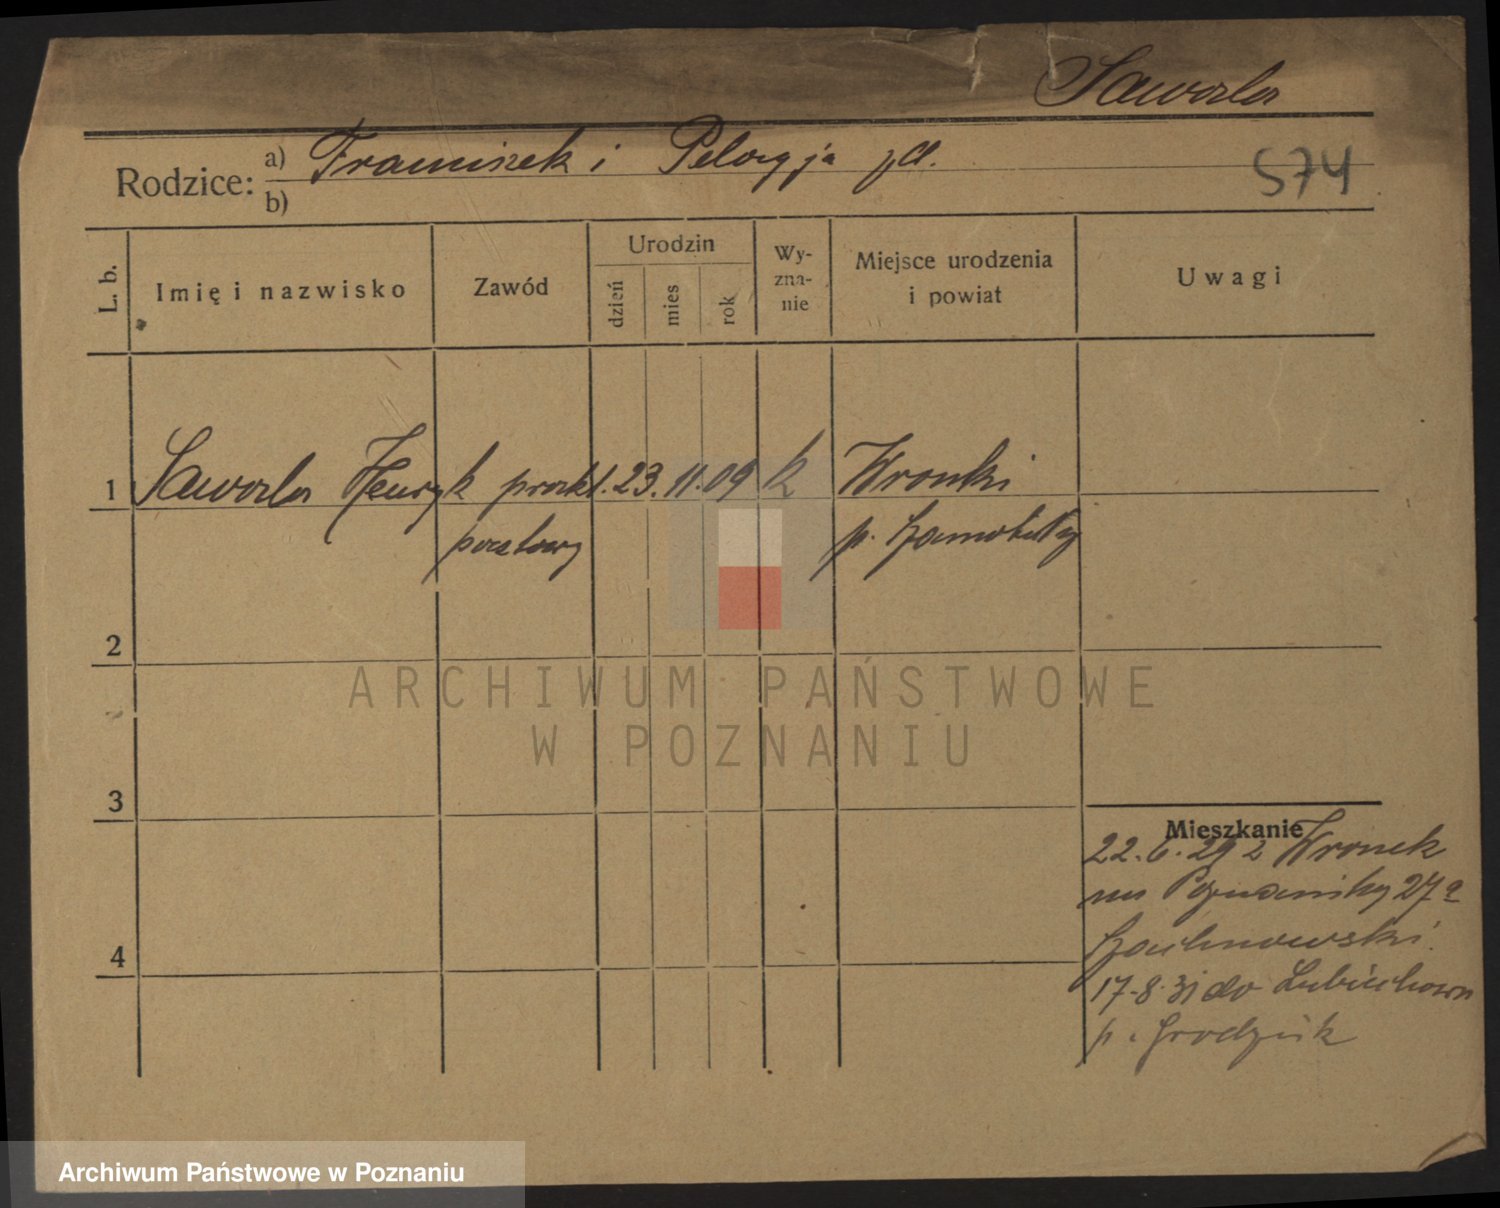 Sawala
Rodzice: a) Franciszek i Pelagja
b)
574
L. b.
Imię i nazwisko
Zawód
Urodzin
dzień
mies
rok
Wy-
zna-
nie
Miejsce urodzenia
i powiat
Uwagi
1 Henryk prakt. 23. 11. 09 k Wronki
pocztowy p. Szamotuły
2
ARCHIWUM PAŃSTWOWE
W POZNANIU
3
Mieszkanie
22. 6. 29 z Wronek
27
17-8. 31 do
p.
4
Archiwum Państwowe w Poznaniu